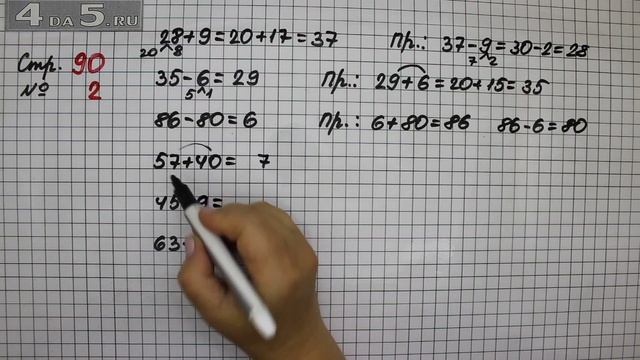 4 DA 5.RU
Стр. 90
№ 2
28+9=20+17=37 Пр.: 37-9=30-2=28
20 8 7 2
35-6=29 Пр.: 29+6=20+15=35
5 1
86-80=6 Пр.: 6+80=86 86-6=80
57+40= 7
45 9=
63